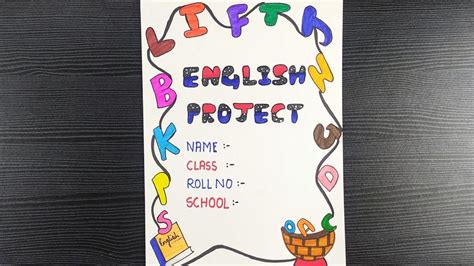 L I F T A
ENGLISH
PROJECT
NAME :-
CLASS :-
ROLL NO :-
SCHOOL :-
B
K
P
S
W
G
D
O A C
English